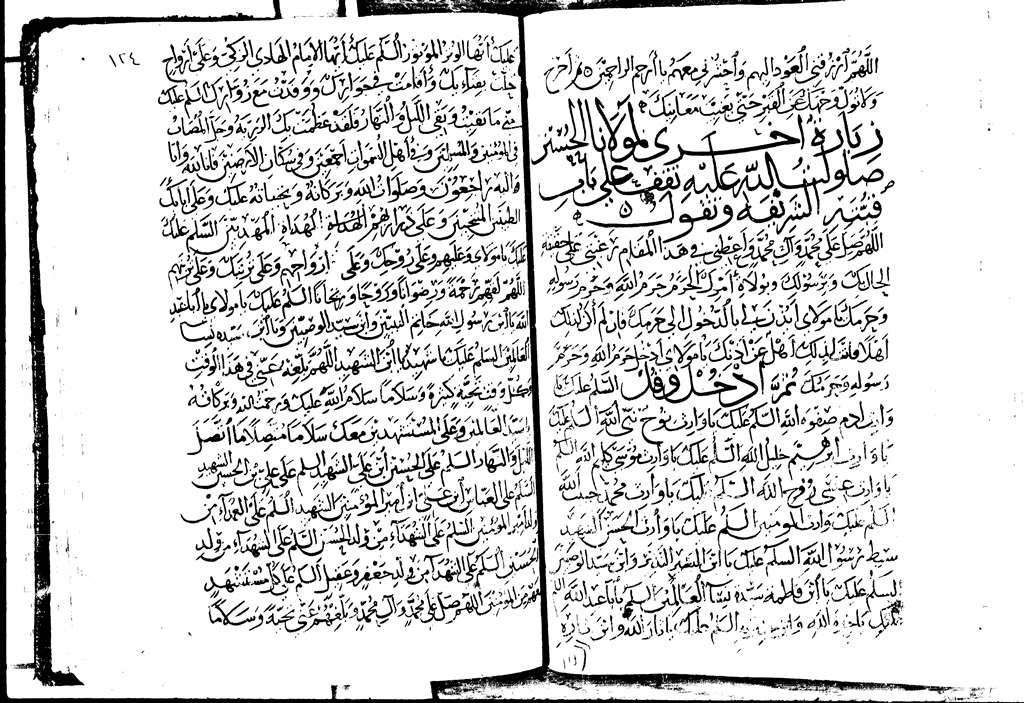 اللهم ارزقني العود اليهم واحشرني معهم يا ارحم الراحمين
زيارة اخرى لمولانا الحسين
صلوات الله عليه تقف على باب
قبته الشريفة وتقول
اللهم صل على محمد وآل محمد واعطني في هذا المقام رغبتي على حقيقة
وحرمك يا مولاي ائذن لي بالدخول الى حرمك فان لم اكن لذلك
اهلا فانت لذلك اهل عن اذنك يا مولاي ادخل حرم الله وحرم
رسوله وحرمك ثم ادخل وقل السلم عليك يا
وارث ادم صفوه الله السلم عليك يا وارث نوح نبي الله السلم عليك
يا وارث ابرهيم خليل الله السلم عليك يا وارث موسى كليم الله السلم
يا وارث عيسى روح الله السلم عليك يا وارث محمد حبيب الله
السلم عليك يا وارث الحسن الشهيد
سبط رسول الله السلم عليك يا ابن البشير النذير وابن سيد الوصيين
السلم عليك يا ابن فاطمه سيده نسا العالمين السلم عليك يا با عبد الله
السلم عليك يا ثار الله وابن ثاره
١٢٤
عليك ايها الوتر الموتور السلم عليك ايها الامام الهادي الزكي وعلى ارواح
حلت بفنائك واقامت في جوارك ووفدت مع زوارك السلم عليك
مني ما بقيت وبقي الليل والنهار فلقد عظمت بك الرزية وجل المصاب
في المؤمنين والمسلمين وفي اهل السموات اجمعين وفي سكان الارضين فانا لله وانا
اليه راجعون وصلوات الله وبركاته وتحياته عليك وعلى ابائك
الطيبين المنتجبين وعلى ذراريهم الهداة المهديين السلم عليك
عليك يا مولاي وعليهم وعلى روحك وعلى ارواحهم وعلى تربتك وعلى تربتهم
اللهم لقهم رحمة ورضوانا وروحا وريحانا السلم عليك يا مولاي يا با عبد
الله يا ابن رسول الله خاتم النبيين وابن سيد الوصيين ويا ابن سيده نسا
العالمين السلم عليك يا شهيد يا ابن الشهيد اللهم بلغه عني في هذا الوقت
وكل وقت تحية كثيرة وسلاما سلام الله عليك ورحمة الله وبركاته
يا سيد العالمين وعلى المستشهدين معك سلاما متصلا ما اتصل
الليل والنهار السلم على الحسين ابن على الشهيد السلم على على بن الحسين الشهيد
السلم على العباس ابن امير المؤمنين الشهيد السلم على الشهدآء من
ولد امير المؤمنين السلم على الشهدآء من ولد الحسن السلم على الشهدآء من ولد
الحسين السلم على الشهدآء من ولد جعفر وعقيل السلم على كل مستشهد
معهم من المؤمنين اللهم صل على محمد وآل محمد وبلغهم عني تحية وسلاما